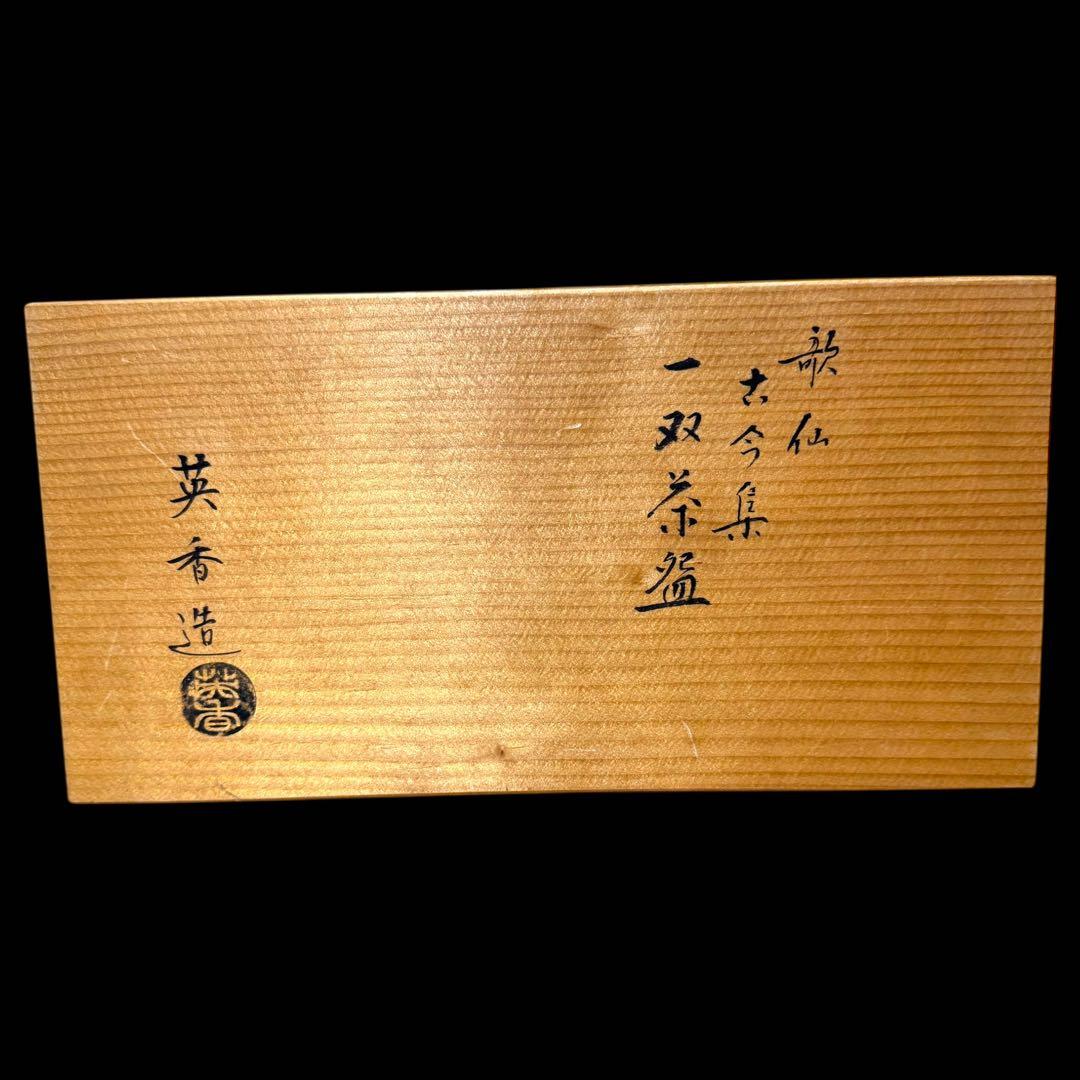 歌仙
古今集
一双茶盌
英香造
英香